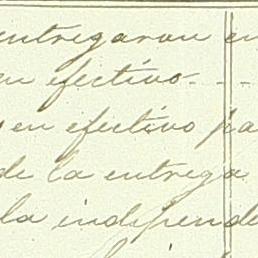 entregaron en
en efectivo...
en efectivo pa
de la entrega
la independe